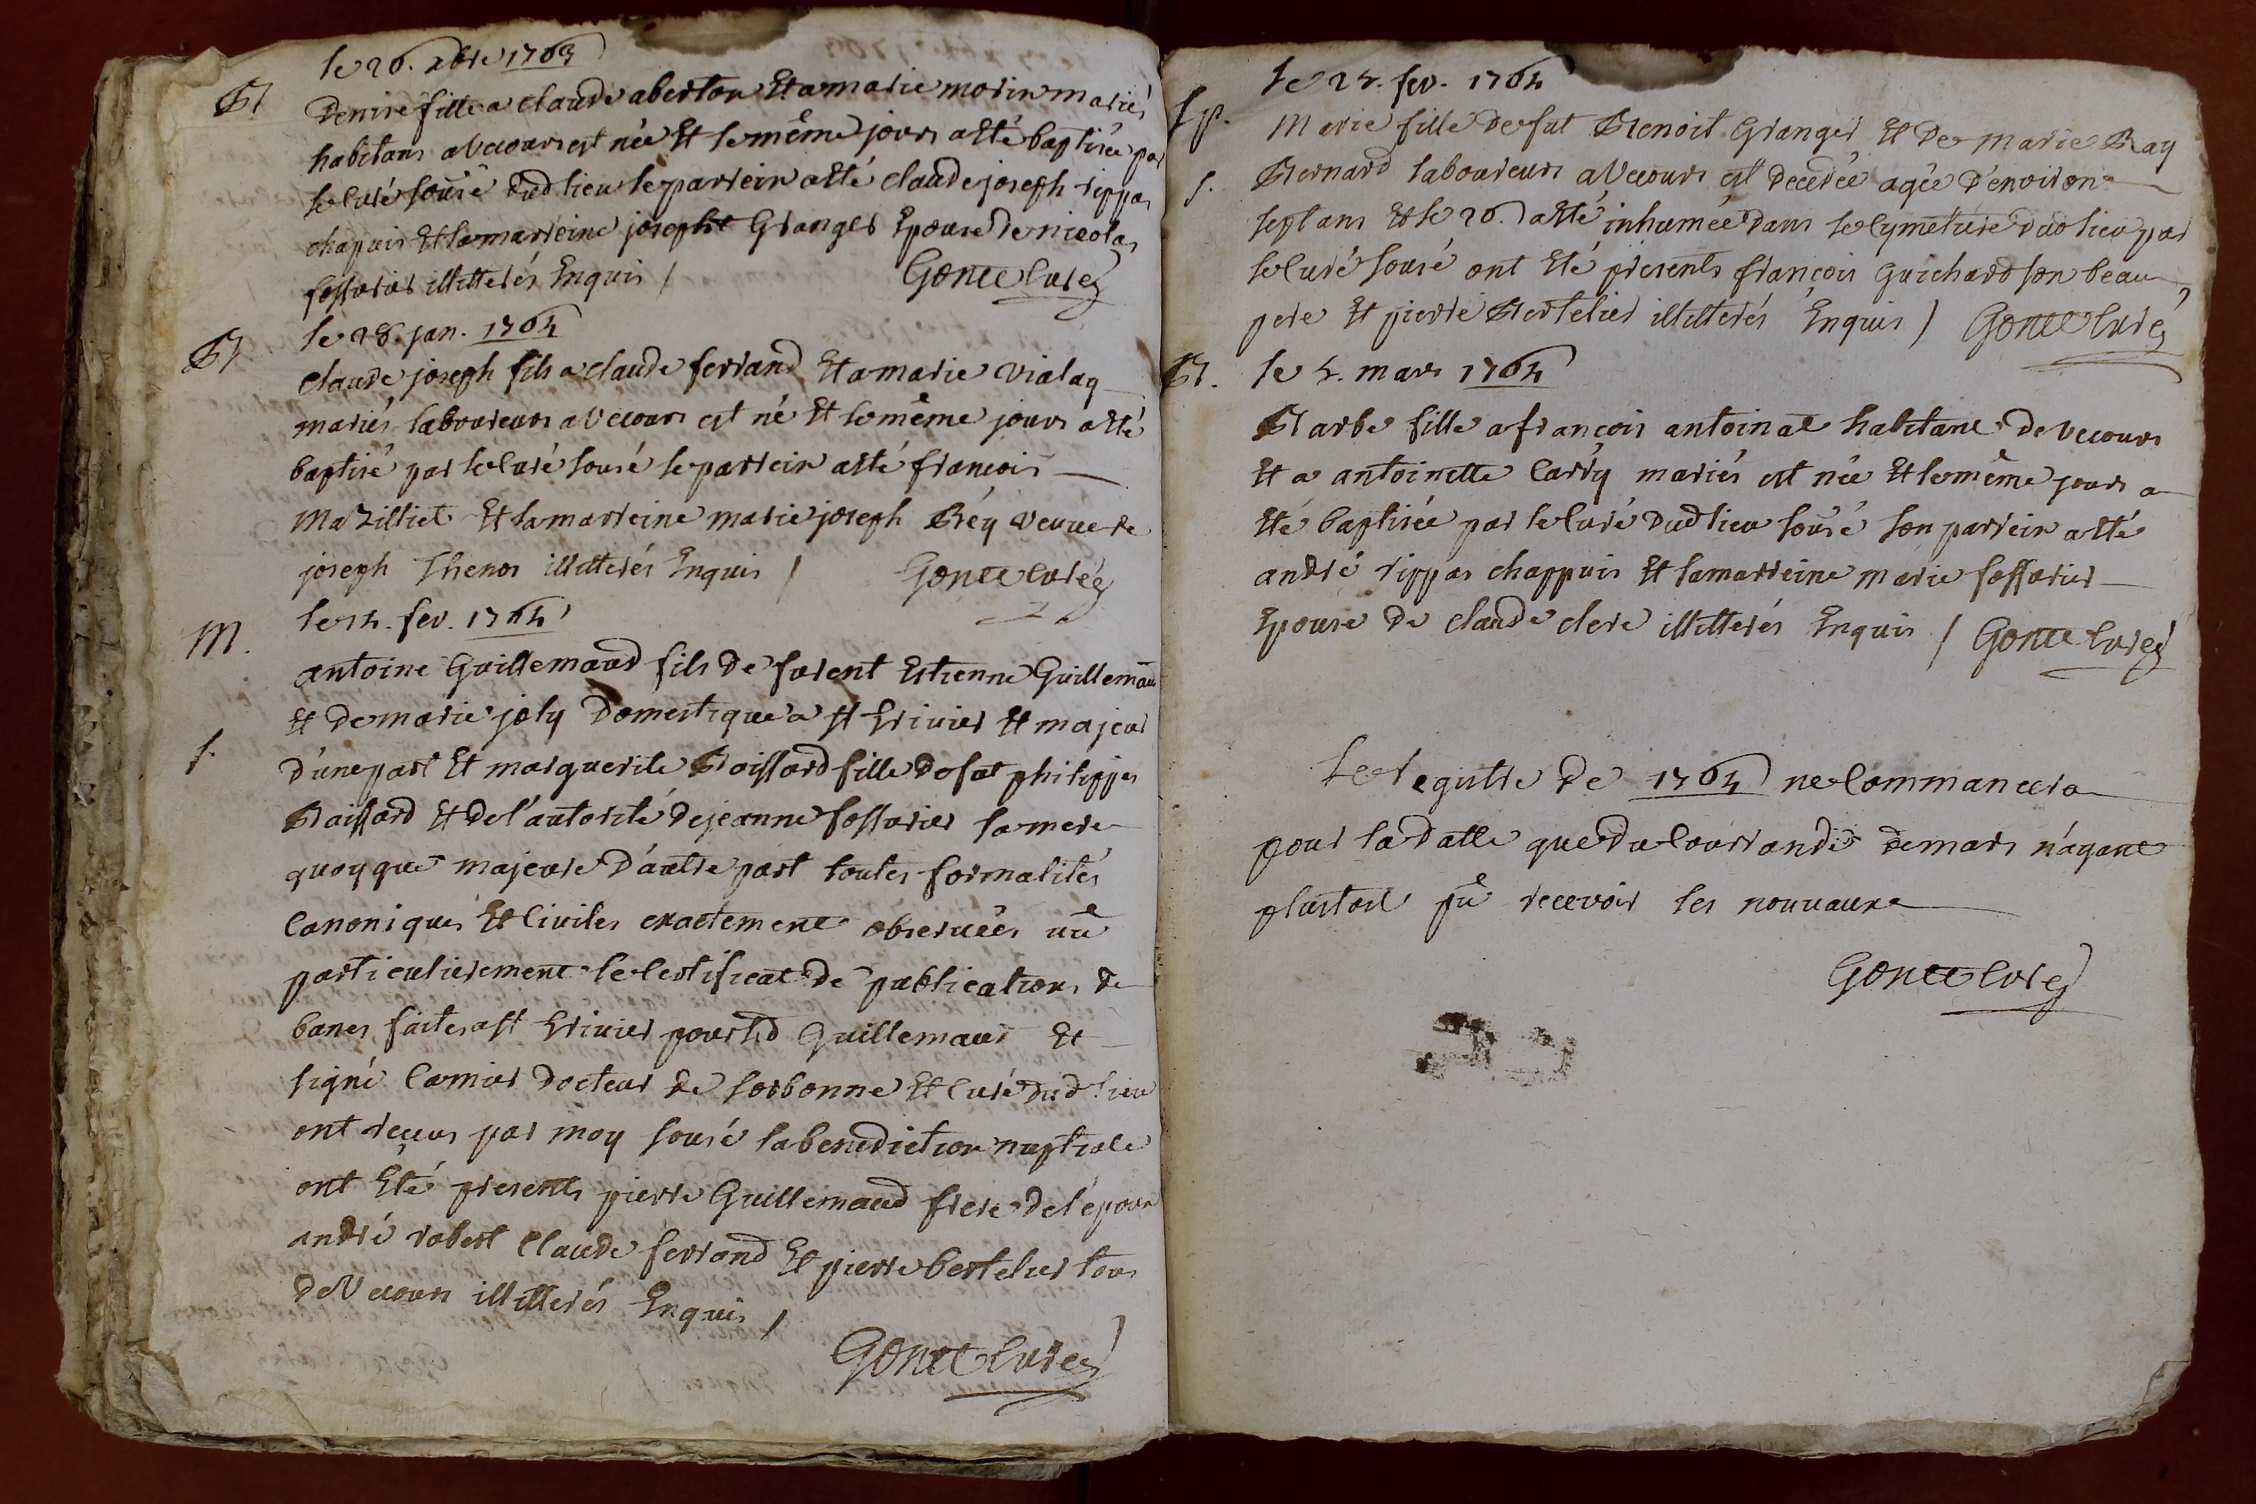 le 26. xbre 1763
Bt Denise fille a claude aberton Et a marie morin mariés
habitans a Vecours est née Et le même jours a Eté baptisée par
le Curé sousé dud lieu le parrein a Eté claude joseph rippas
chapuis Et la marreine josepht Granger Epouse de nicolas
fossurier illitterés Enquis / Gonce Curé
le 28. jan. 1764
Bt Claude joseph fils a claude ferrand Et a marie vialay
mariés laboureurs a Vecours est né Et le même jours a Eté
baptisé par le Curé sousé le parrein a Eté francois
Mazilliet Et la marreine marie joseph Bréy Veuve de
joseph Thenos illitterés Enquis / Gonce Curé
le 14. fev. 1764
M. antoine Guillemaud fils de furent Estienne Guillemau
Et de marie joly Domestique a st trivier Et majeur
f. d'une part Et marguerite Boissard fille de fut philippes
Boissard Et de l'autorité de jeanne fossurier sa mere
quoyque majeure d'autre part toutes formalités
Canoniques Et Civiles exactement observées vû
particulierement le Certificat de publications de
bancs faites a st trivier pour led Guillemaud Et
signé Camus Docteur de sorbonne Et Curé dud lieu
ont reçus par moy sousé la benediction nuptiale
ont Eté presents pierre Guillemaud frere de l'epoux
andré robert Claude ferrand Et pierre bertelier tous
de Vecours illitterés Enquis /
Gonce Curé
le 25. fev. 1764
Sp. Marie fille de fut Benoit Granger Et de marie Ray
f. Bernard laboureurs a Vecours est decedée agée d'environ
sept ans Et le 26. a Eté inhumée dans le Cymetiere dud lieu par
le Curé sousé ont Eté presents françois Guichard son beau
pere Et pierre Bertelier illitterés Enquis / Gonce Curé
Bt. le 5. mars 1764
Barbe fille a françois antoinat habitant de Vecours
Et a antoinette Carry mariés est née Et le même jours a
Eté baptisée par le Curé dud lieu sousé son parrein a Eté
andré rippas chappuis Et la marreine marie fossurier
Epouse de claude clere illitterés Enquis / Gonce Curé
Le registre de 1764 ne Commancera
pour la datte que du Courrand de mars n'ayant
plustost pû recevoir les nouvaux
Gonce Curé